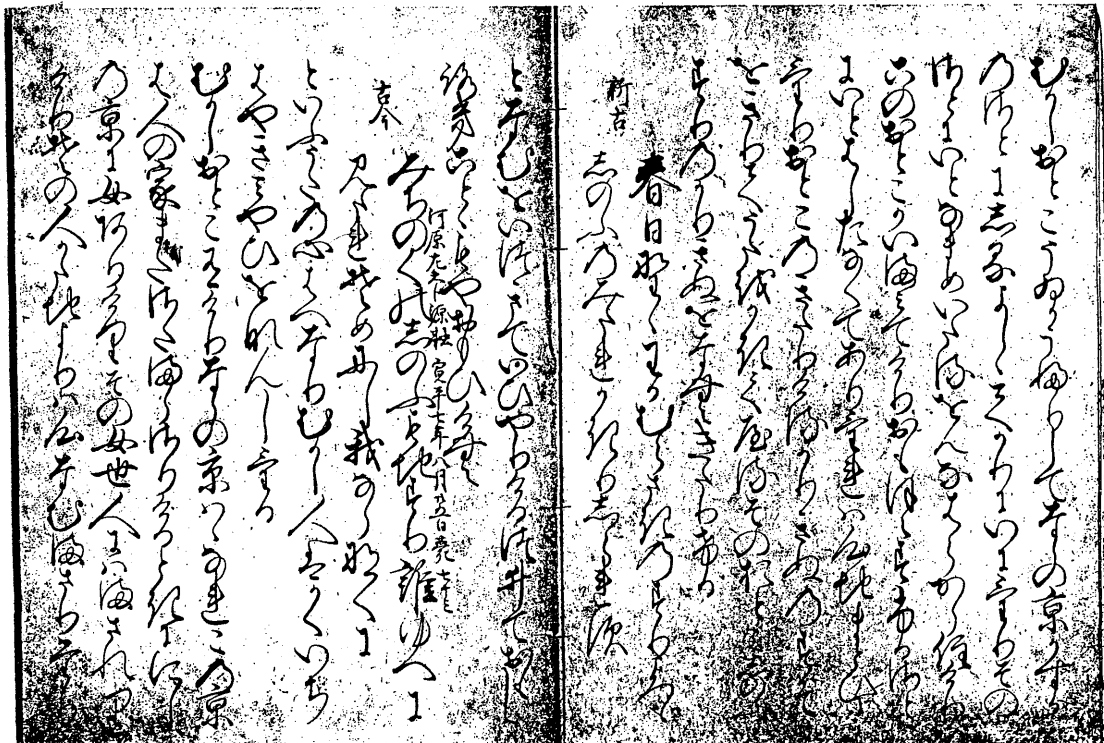 むかしおとこうゐかうふりしてならの京かすか
のさとにしるよしゝてかりにいにけりその
さとにいとなまめいたるをんなはらから住けり
このおとこかいまみてけりおもほえすふるさと
にいとはしたなくてありけれは心地まとひに
けりおとこのきたりけるかりきぬのすそ
をきりてうたをかきてやるそのおとこし
のふすりのかりきぬをなむきたりける
新古
春日野ゝわかむらさきのすり衣
しのふのみたれかきりしられす
となむをいつきていひやりけるつゐておもし
ろきことゝもや思ひけむ
河原左大臣源融 寛平七年八月廿五日薨 七十三
みちのくの志のふもちすり誰ゆへに
古今
みたれそめにし我ならなくに
といふうたの心はへなりむかし人はかくいち
はやきみやひをなんしける
むかしおとこ有けりならの京はゝなれこの京
は人の家またさたまらさりける時にゝし
の京に女ありけりその女世人にはまされり
けりその人かたちよりは心なむまさりたり